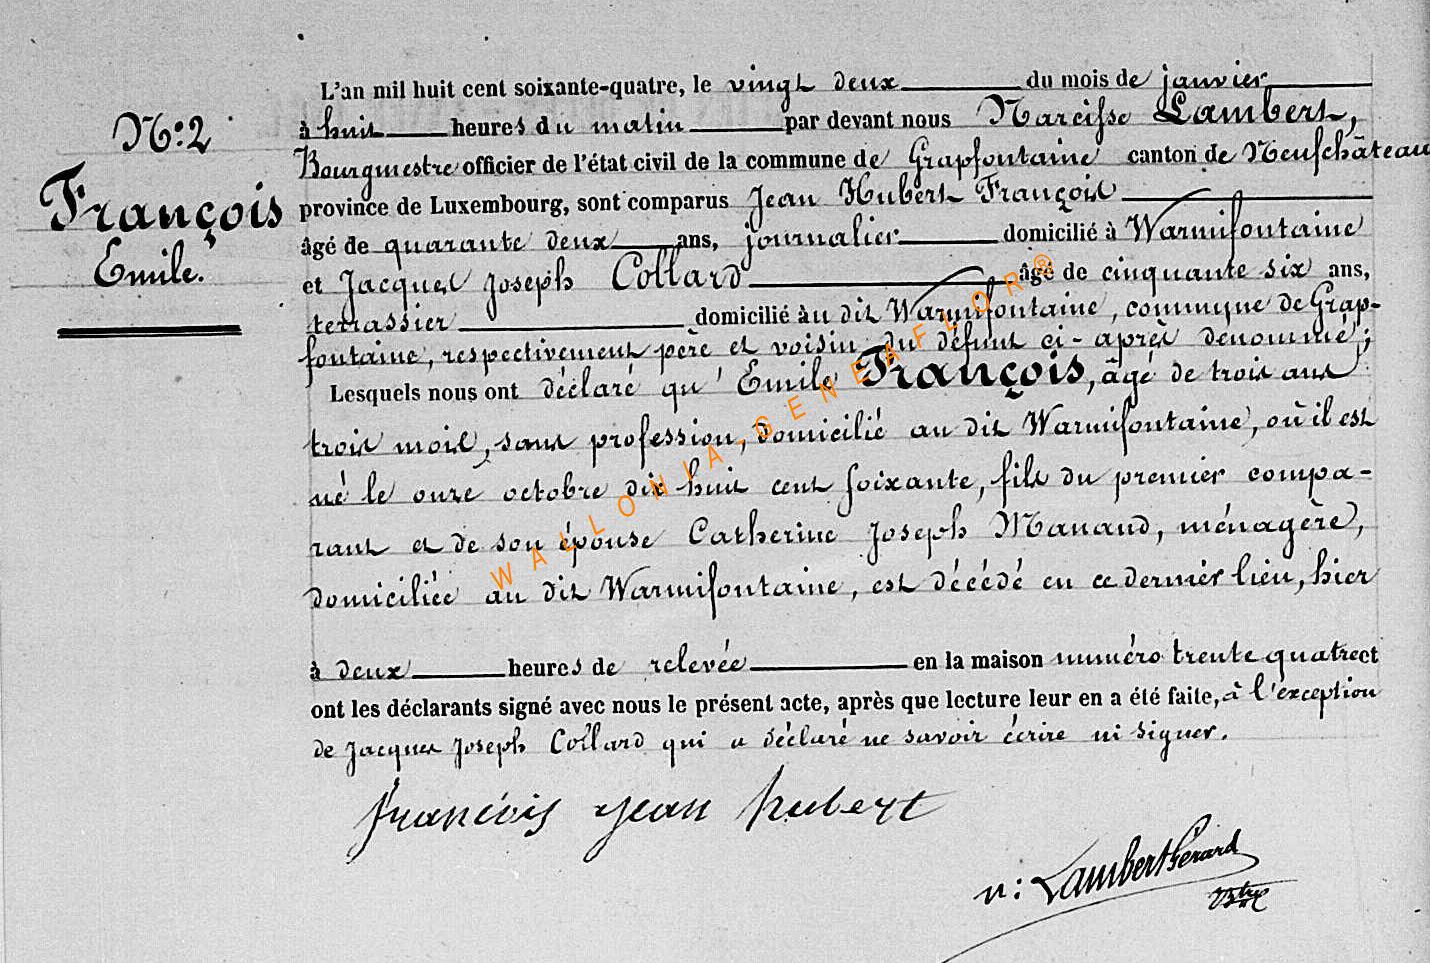 N° 2
François
Emile.
L'an mil huit cent soixante-quatre, le vingt deux du mois de janvier
à huit heures du matin par devant nous Narcisse Lambert,
Bourgmestre officier de l'état civil de la commune de Grapfontaine canton de Neufchâteau
province de Luxembourg, sont comparus Jean Hubert François
âgé de quarante deux ans, journalier domicilié à Warmifontaine
et Jacques Joseph Collard âgé de cinquante six ans,
terrassier domicilié au dit Warmifontaine, commune de Grap-
fontaine, respectivement père et voisin du défunt ci-après dénommé;
Lesquels nous ont déclaré qu'Emile François, âgé de trois ans
trois mois, sans profession, domicilié au dit Warmifontaine, où il est
né le onze octobre dix huit cent soixante, fils du premier compa-
rant et de son épouse Catherine Joseph Manand, ménagère,
domiciliée au dit Warmifontaine, est décédé en ce dernier lieu, hier
à deux heures de relevée en la maison numéro trente quatre et
ont les déclarants signé avec nous le présent acte, après que lecture leur en a été faite, à l'exception
de Jacques Joseph Collard qui a déclaré ne savoir écrire ni signer.
françois jean hubert
n: Lambert Gérard
Btre
WALLONIA-GENEAFLOR®